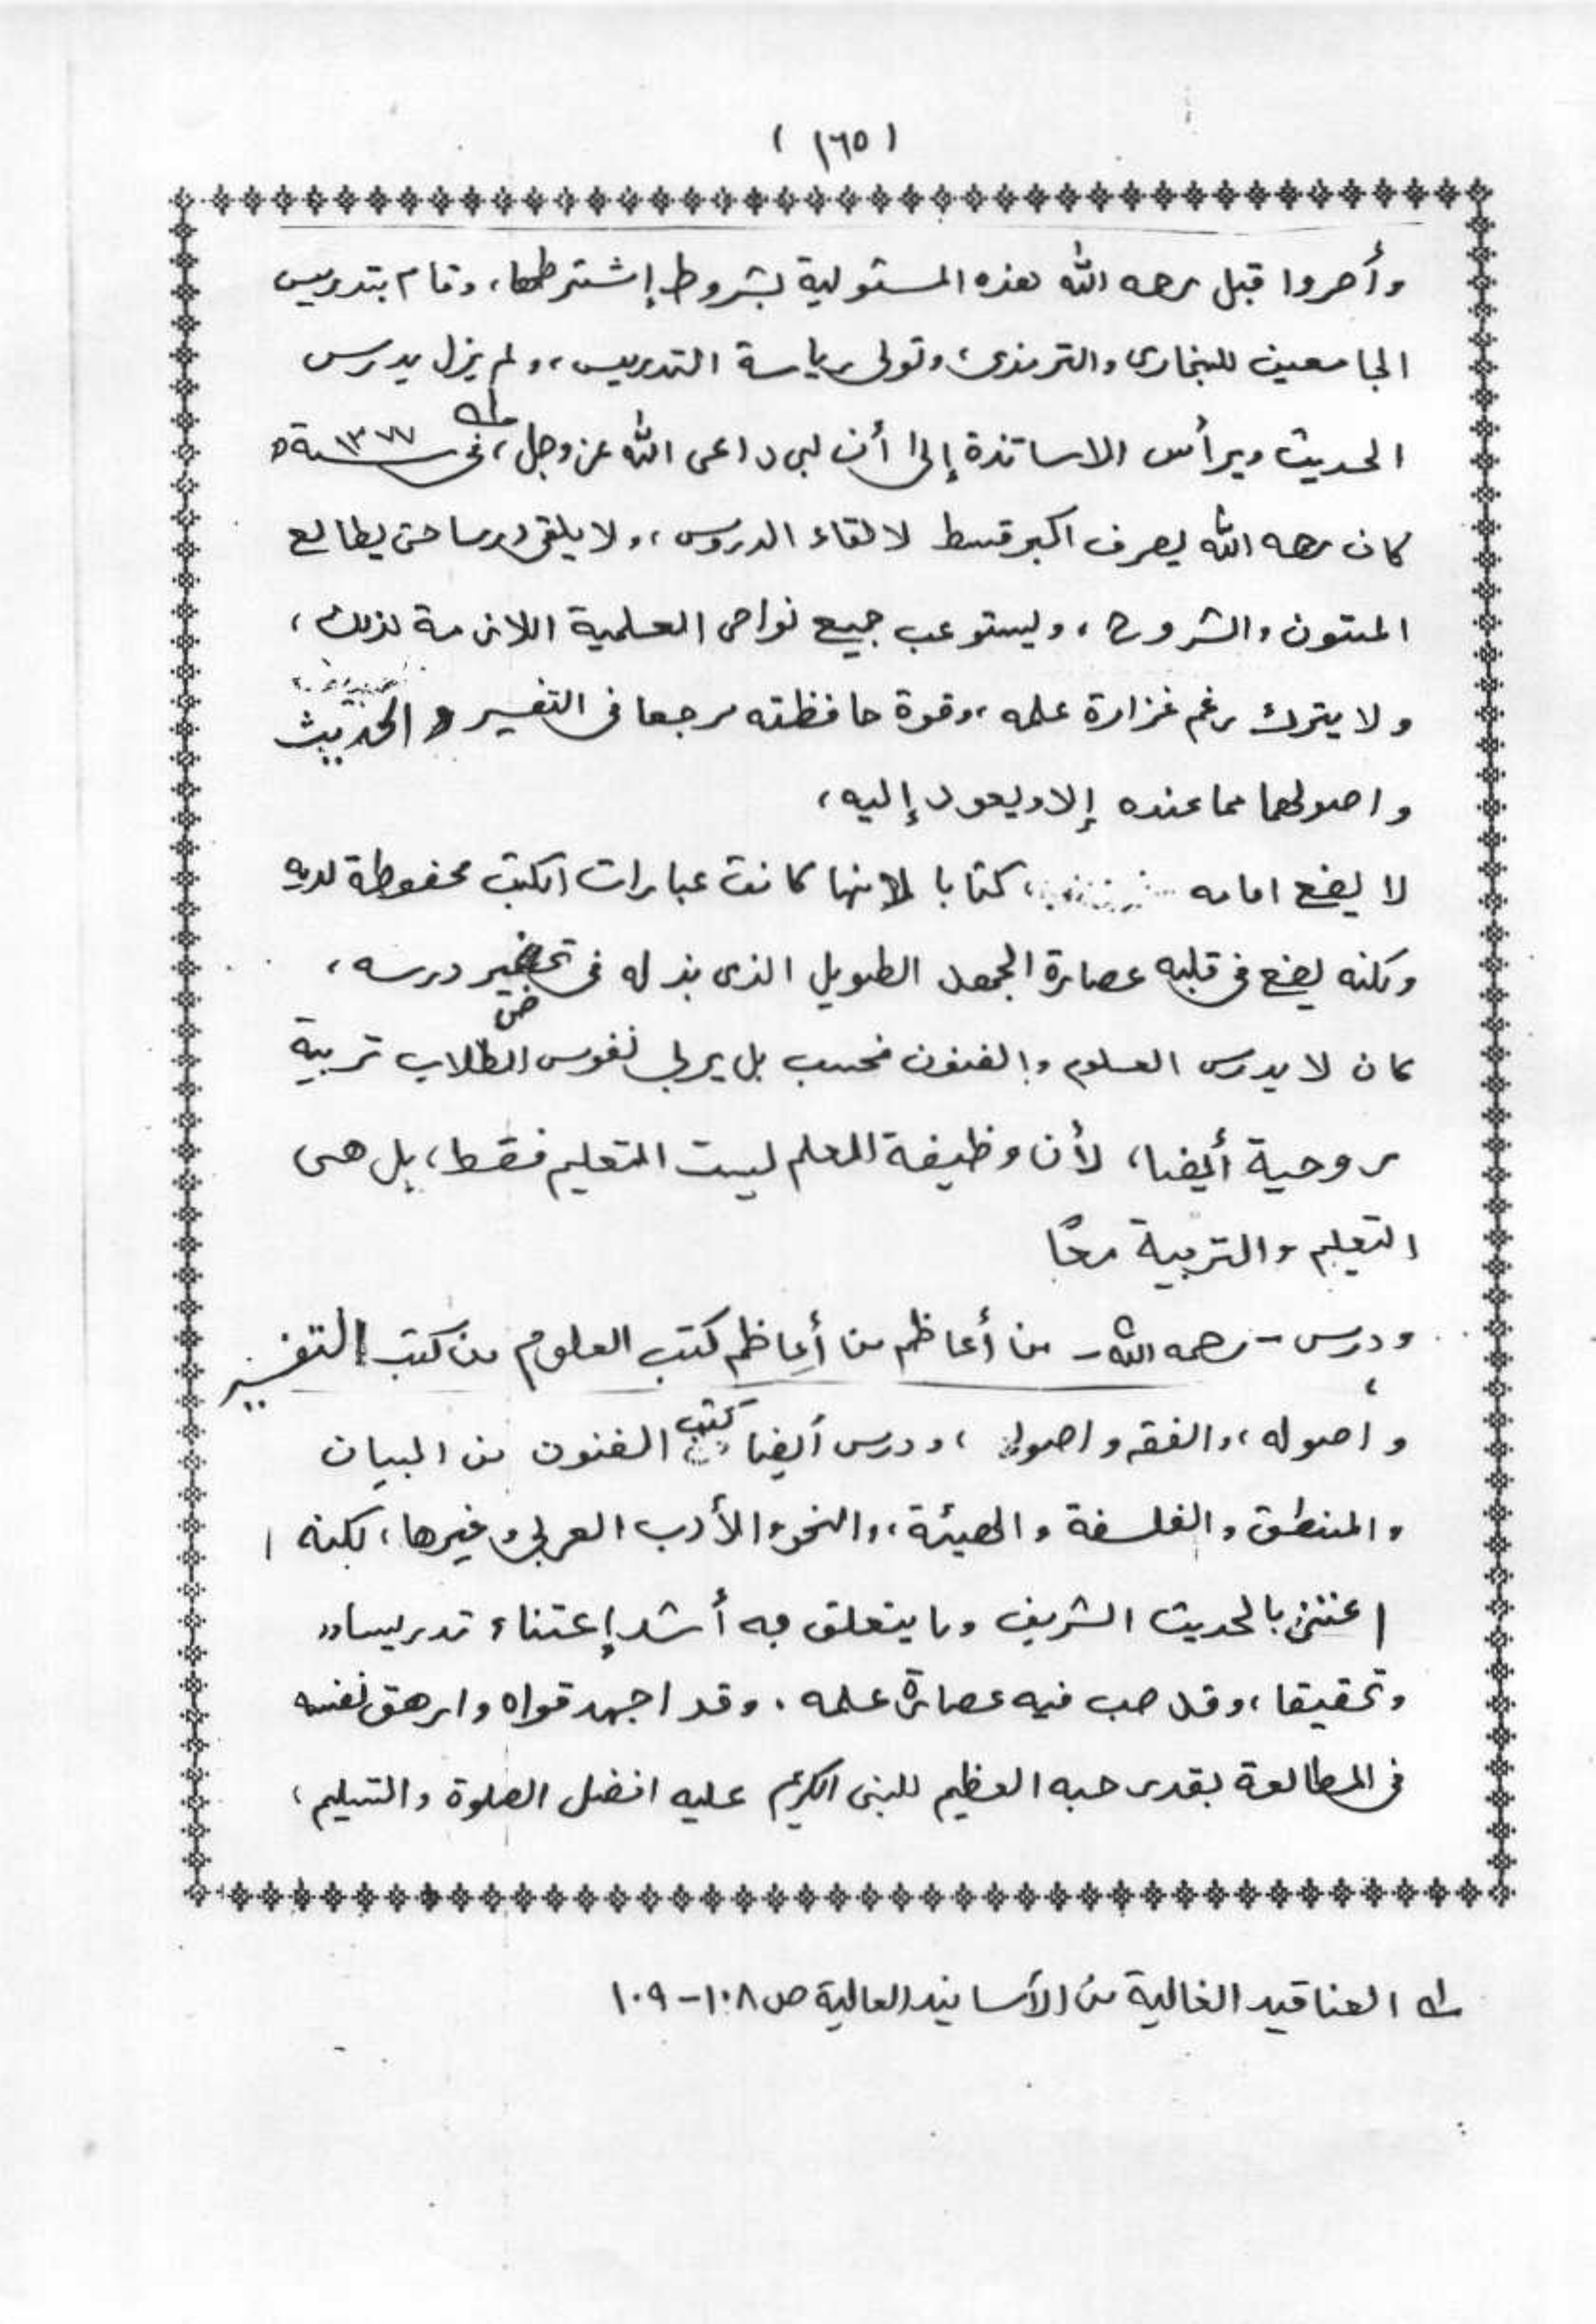 ( ١٦٥ )
وأصروا قبل رحمه الله هذه المسئولية بشروط إشترطها، وقام بتدريس
الجامعين للبخارى والترمذى، وتولى رياسة التدريس،، ولم يزل يدرس
الحديث ويرأس الاساتذة إلى أن لبى داعى الله عز وجل، فى سنة ١٣٧٧ھ
كان رحمه الله يصرف اكبر قسط لالقاء الدروس،، ولا يلقى درسا حتى يطالع
المتون والشروح، ويستوعب جميع نواحى العلمية اللازمة لذلك،
ولا يترك رغم غزارة علمه، وقوة حافظته مرجعا فى التفسير و الحديث
واصولهما مما عنده إلا ويعود إليه،
لا يضع امامه كتابا لأنها كانت عبارات الكتب محفوظة لديه
ولكنه يضع فى قلبه عصارة الجهد الطويل الذى بذله فى تحضير درسه،
كان لا يدرس العلوم والفنون فحسب بل يربى نفوس الطلاب تربية
روحية أيضا، لأن وظيفة المعلم ليست التعليم فقط، بل هى
التعليم والتربية معًا
ودرس - رحمه الله - من أعاظم من أعاظم كتب العلوم من كتب التفسير
واصوله،، والفقه واصوله، ودرس أيضا كتب الفنون من البيان
والمنطق والفلسفة والهيئة،، والنحو والأدب العربى وغيرها، لكنه ا
اعتنى بالحديث الشريف وما يتعلق به أشد إعتناء تدريسا،،
وتحقيقا، وقد صب فيه عصارة علمه. وقد اجهد قواه وارهق نفسه
فى المطالعة بقدر حبه العظيم للنبى الكريم عليه افضل الصلوة والتسليم،
له العناقيد الغالية من الأسانيد العالية ص ١٠٨-١٠٩